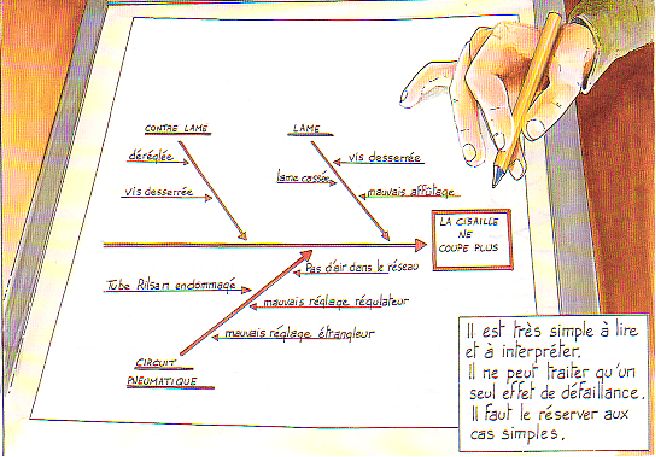 CONTRE LAME
LAME
déréglée
vis desserrée
vis desserrée
lame cassée
mauvais affûtage
LA CISAILLE
NE
COUPE PLUS
Pas d'air dans le réseau
Tube Rilsam endommagé
mauvais réglage régulateur
mauvais réglage étrangleur
CIRCUIT
PNEUMATIQUE
Il est très simple à lire
et à interpréter.
Il ne peut traiter qu'un
seul effet de défaillance.
Il faut le réserver aux
cas simples.